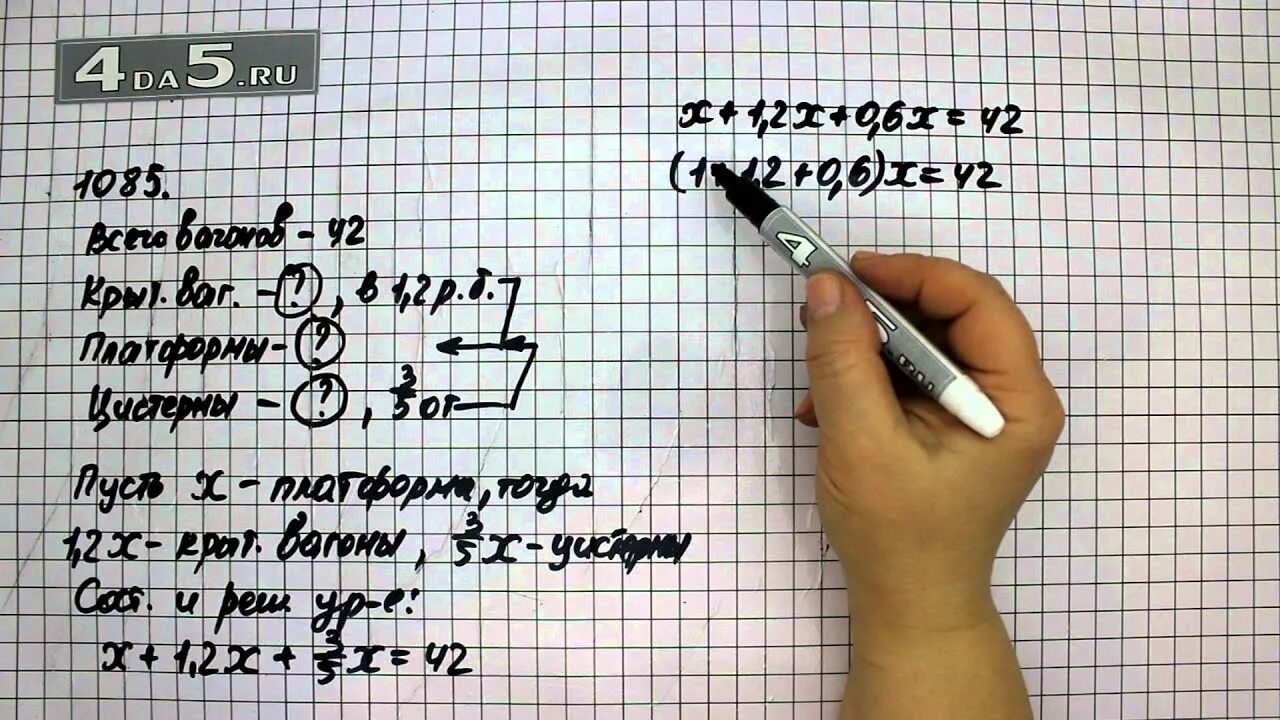 4DA5.RU
1085.
Всего вагонов - 42
Крыт. ваг. - ?, в 1,2 р. б.
Платформы - ?
Цистерны - ?, 3/5 от
Пусть x - платформа, тогда
1,2x - крыт. вагоны, 3/5x - цистерны
Сост. и реш. ур-е:
x + 1,2x + 3/5x = 42
x + 1,2x + 0,6x = 42
(1 + 1,2 + 0,6)x = 42
4 5.RU